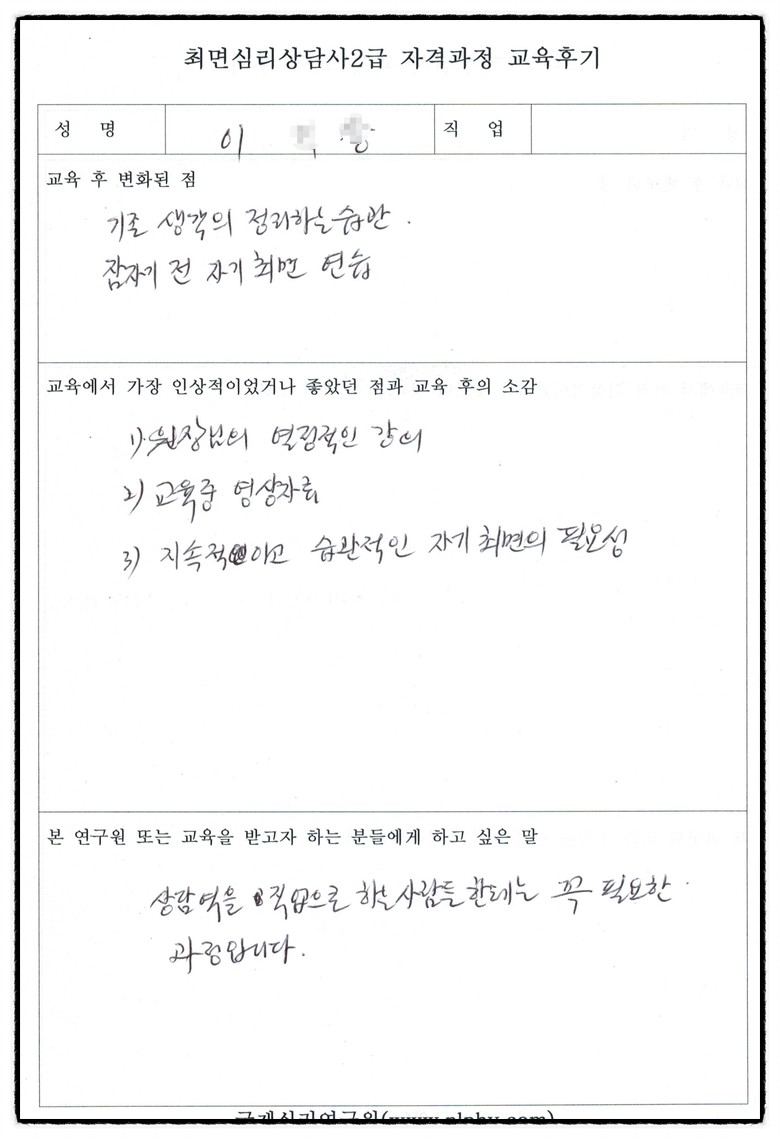 최면심리상담사2급 자격과정 교육후기
성 명
이
직 업
교육 후 변화된 점
기존 생각의 정리하는 습관.
잠자기 전 자기최면 연습
교육에서 가장 인상적이었거나 좋았던 점과 교육 후의 소감
1) 원장님의 열정적인 강의
2) 교육중 영상자료
3) 지속적이고 습관적인 자기최면의 필요성
본 연구원 또는 교육을 받고자 하는 분들에게 하고 싶은 말
상담역을 직업으로 하는 사람들한테는 꼭 필요한
과정입니다.